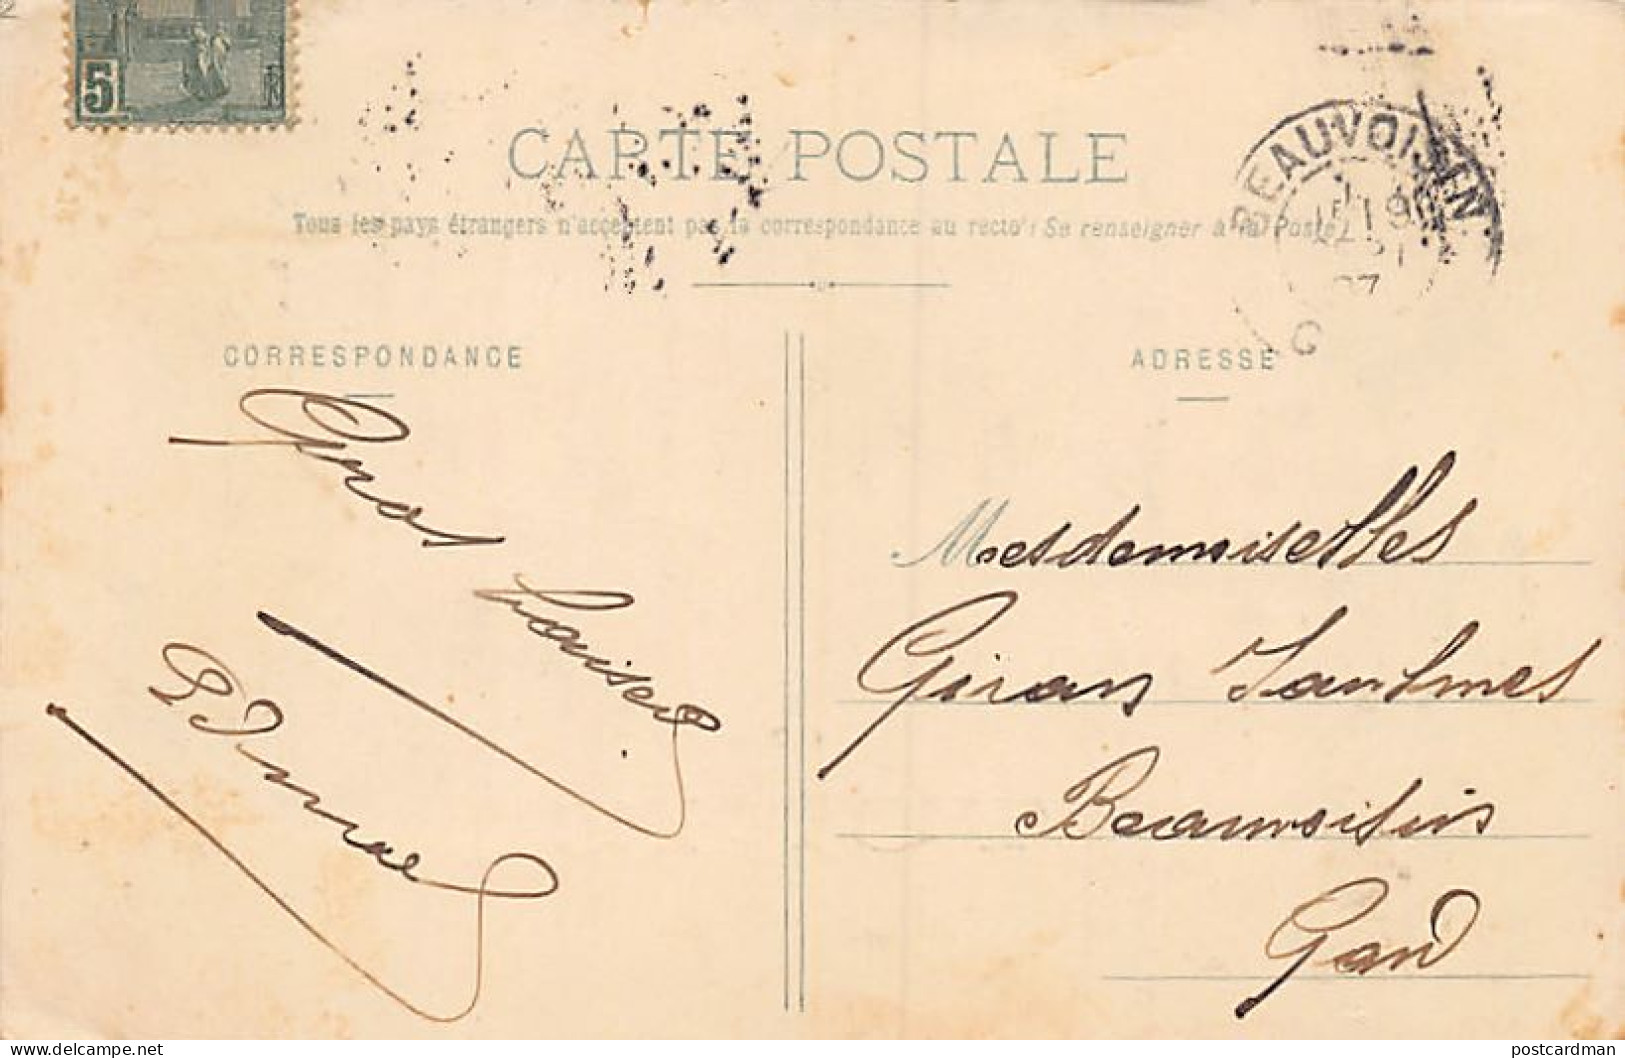 5
CARTE POSTALE
Tous les pays étrangers n'acceptent pas la correspondance au recto (Se renseigner à la Poste)
BEAUVOISIN
07
G
CORRESPONDANCE
ADRESSE
Mesdemoiselles
Giran
Beauvoisin
Gard
Gros baisers
www.delcampe.net
postcardman